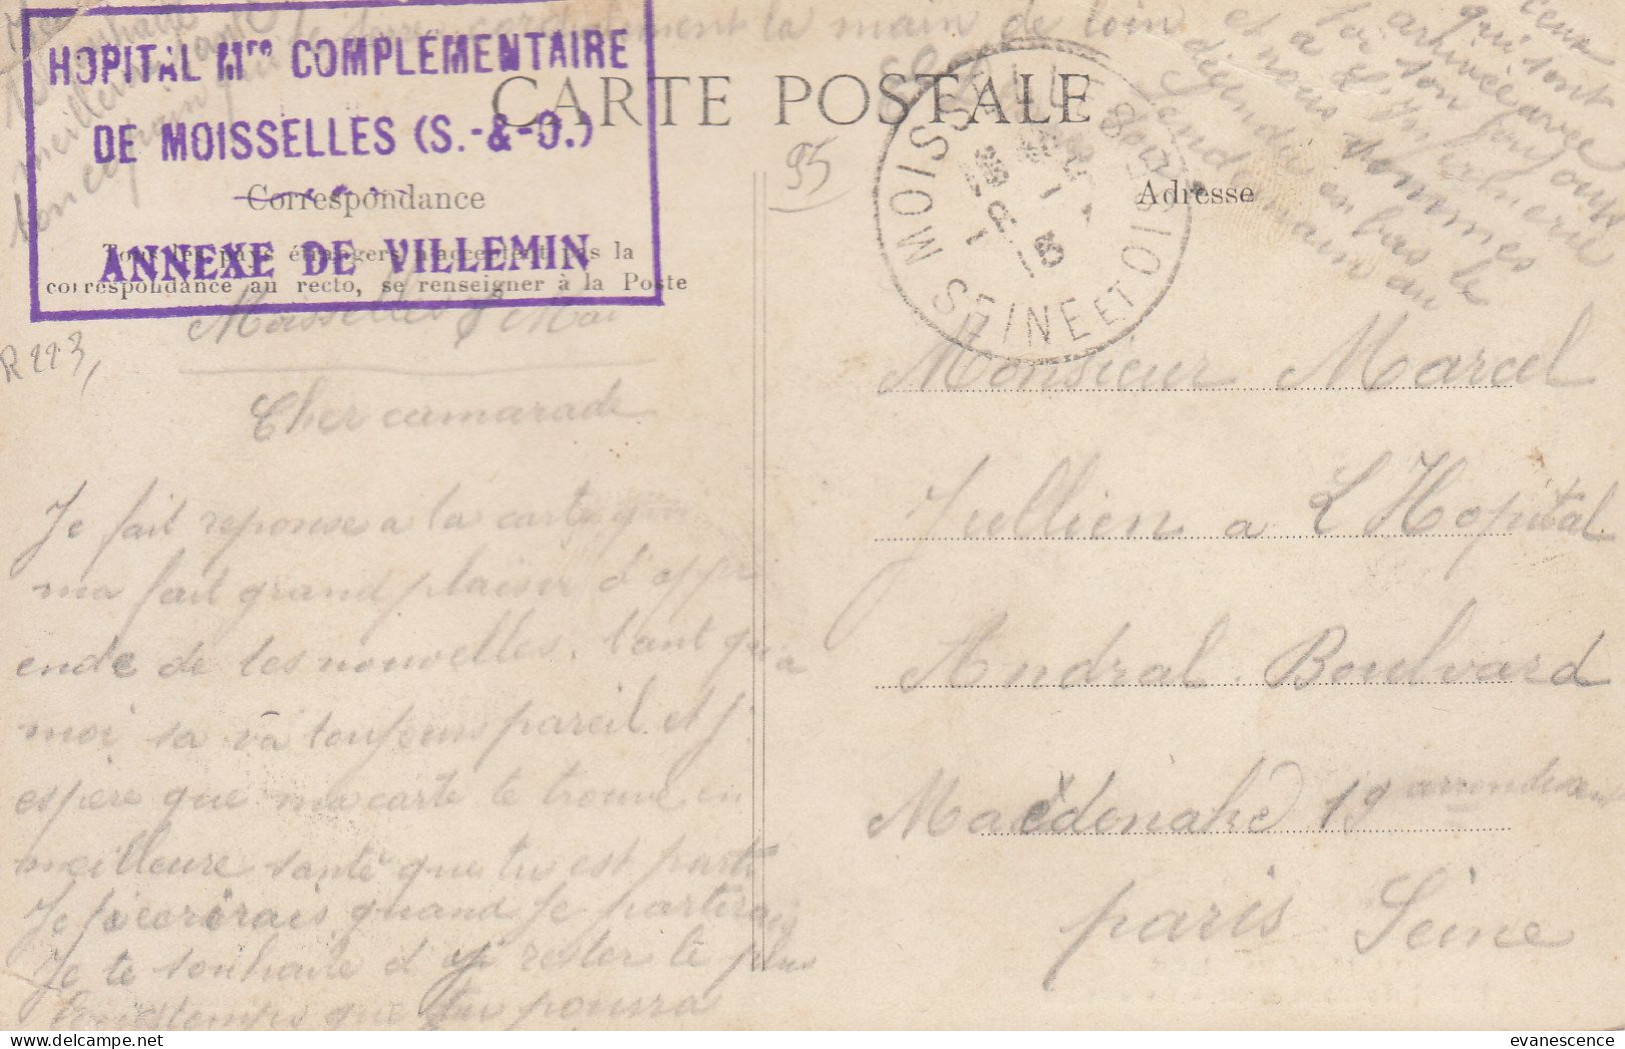 HOPITAL Mre COMPLÉMENTAIRE
DE MOISSELLES (S.-&-O.)
ANNEXE DE VILLEMIN
CARTE POSTALE
Correspondance
Tous les pays étrangers n'acceptent pas la
correspondance au recto, se renseigner à la Poste
Adresse
MOISSELLES
SEINE ET OISE
95
R223,
cordialement la main de loin
Moisselles 8 Mai
Cher camarade
Je fait reponse a ta carte qui
ma fait grand plaisir d'appr
ende de tes nouvelles. tant qu'a
moi sa va toujours pareil et j'
espère que ma carte te trouve en
meilleure santé que tu est parti
Je quand Je partirais
Je te souhaite d'y rester le plus
longtemps que tu pourra
ceux
qui sont
arrivée avec
et nous sommes
descendu en bas le
lendemain au
Monsieur Marcel
Jullien a L'Hopital
Andral. Boulvard
Macédonahe 19 arrondissement
paris Seine
evanescence